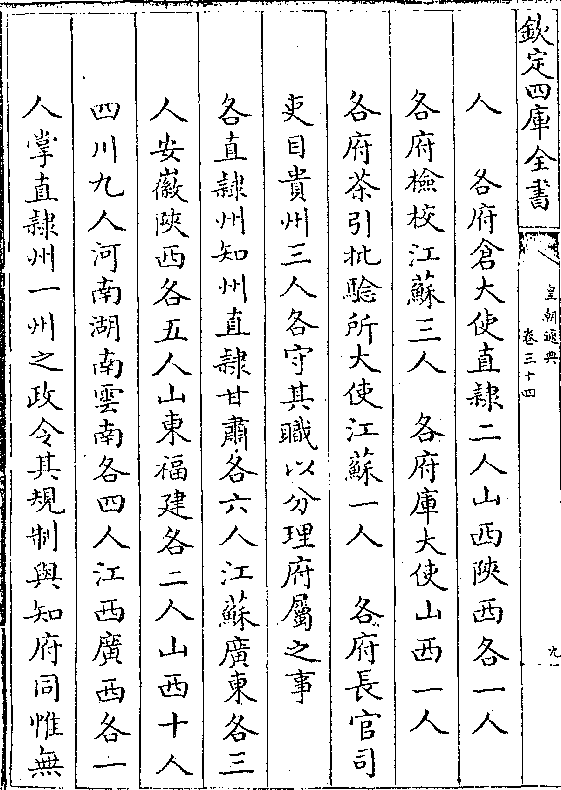 欽定四庫全書
皇朝通典
卷三十四
九
人　各府倉大使直隸二人山西陝西各一人
各府檢校江蘇三人　各府庫大使山西一人
各府茶引批驗所大使江蘇一人　各府長官司
吏目貴州三人各守其職以分理府屬之事
各直隸州知州直隸甘肅各六人江蘇廣東各三
人安徽陝西各五人山東福建各二人山西十人
四川九人河南湖南雲南各四人江西廣西各一
人掌直隸州一州之政令其規制與知府同惟無